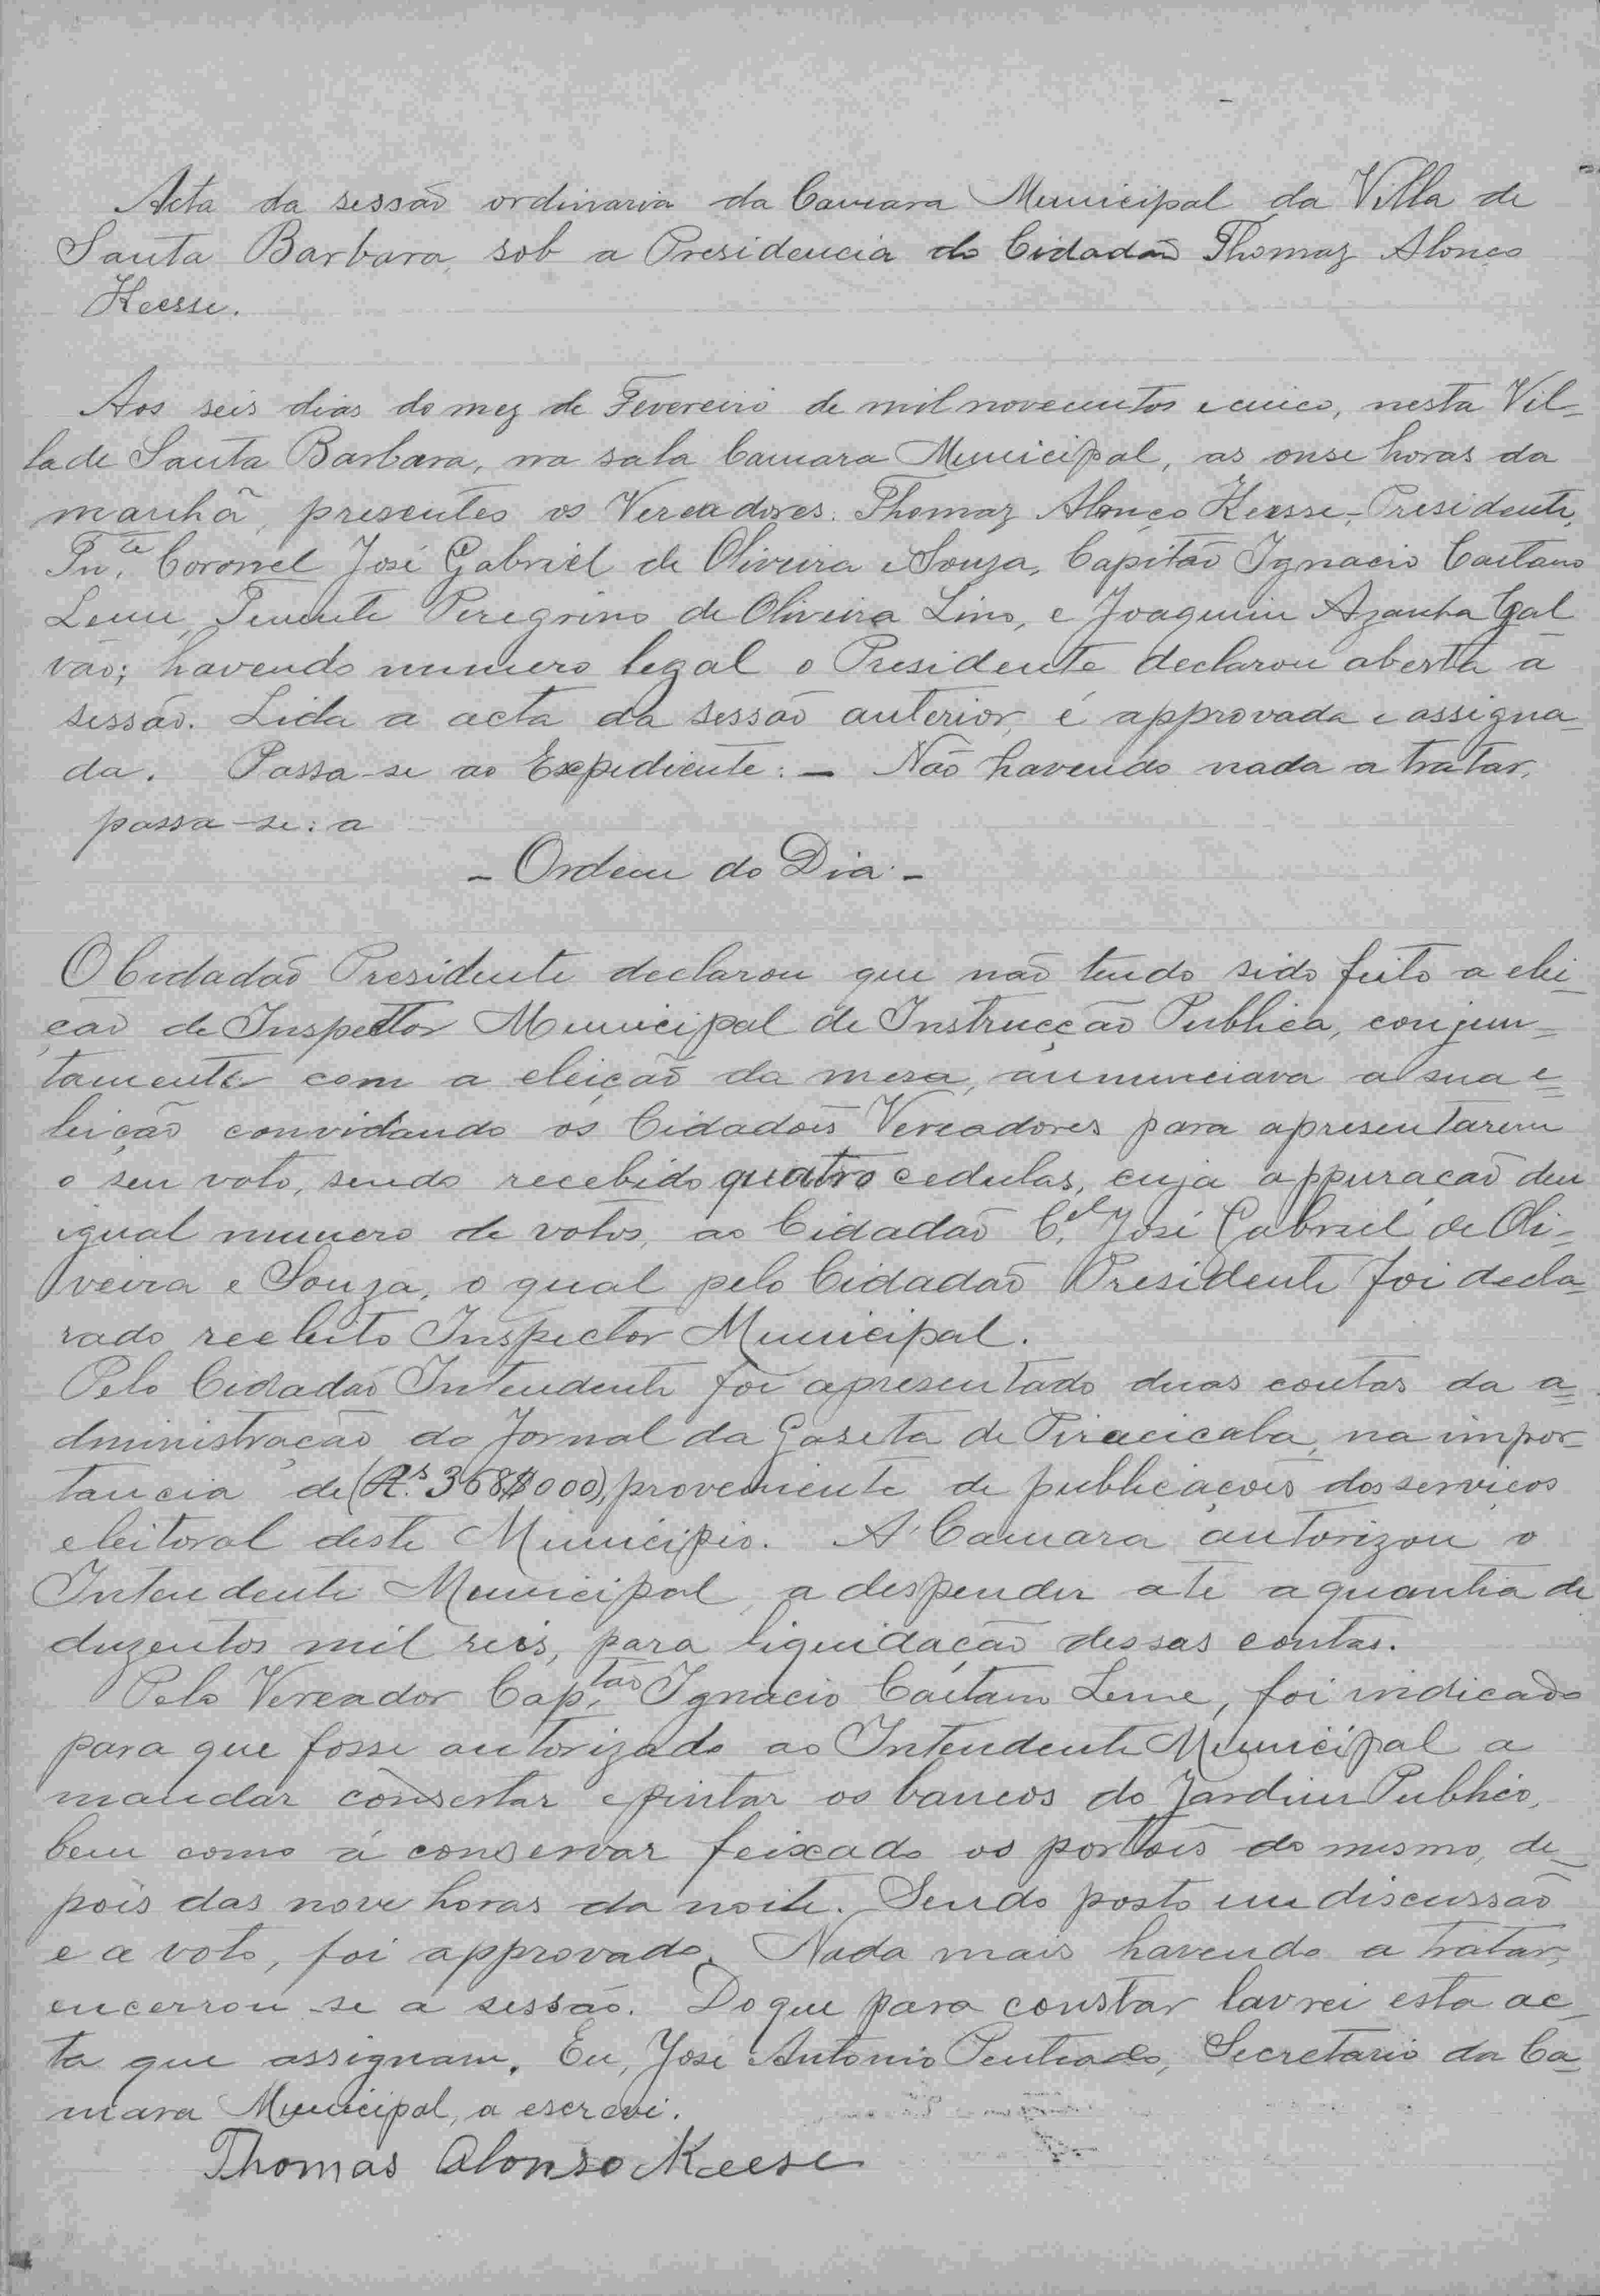 Acta da sessão ordinaria da Camara Municipal da Villa de
Santa Barbara, sob a Presidencia do Cidadão Thomaz Alonço
Keesse.
Aos seis dias do mez de Fevereiro de mil novecentos e cinco, nesta Vil=
la de Santa Barbara, na sala Camara Municipal, as onse horas da
manhã, presentes os Vereadores. Thomaz Alonço Keesse, Presidente,
Tn.te Coronel José Gabriel de Oliveira e Souza, Capitão Ignacio Caetano
Leme, Tenente Peregrino de Oliveira Lino, e Joaquim Azanha Gal
vão; havendo numero legal o Presidente declarou aberta a
sessão. Lida a acta da sessão anterior, é approvada e assigna_
da. Passa-se ao Expediente: — Não havendo nada a tratar,
passa-se: a
— Ordem do Dia: —
O Cidadão Presidente declarou que não tendo sido feito a elei_
ção de Inspettor Municipal de Instrucção Publica, conjun=
tamente com a eleição da mesa, annunciava a sua e=
leição convidando os Cidadões Vereadores para apresentarem
o seu voto, sendo recebido quatro cedulas, cuja appuração deu
igual numero de votos, ao Cidadão C.el José Gabriel de Oli=
veira e Souza, o qual pelo Cidadão Presidente foi decla_
rado reeleito Inspector Municipal.
Pelo Cidadão Intendente foi apresentado duas contas da a=
dministração do Jornal da Gaseta de Piracicaba, na impor_
tancia de (R.s 368$000), proveniente de publicações dos serviços
eleitoral deste Municipio. A Camara autorizou o
Intendente Municipal, a despender até a quantia de
duzentos mil reis, para liquidação dessas contas.
Pelo Vereador Cap.tão Ignacio Caetano Leme, foi indicado
para que fosse autorizado ao Intendente Municipal a
mandar consertar e pintar os bancos do Jardim Publico,
bem como á conservar feixado os portões do mesmo, de_
pois das nove horas da noite. Sendo posto em discussão
e a voto, foi approvado. Nada mais havendo a tratar,
encerrou-se a sessão. Do que para constar lavrei esta ac_
ta que assignam. Eu, José Antonio Penteado, Secretario da Ca_
mara Municipal, a escrevi.
Thomas Alonso Keese